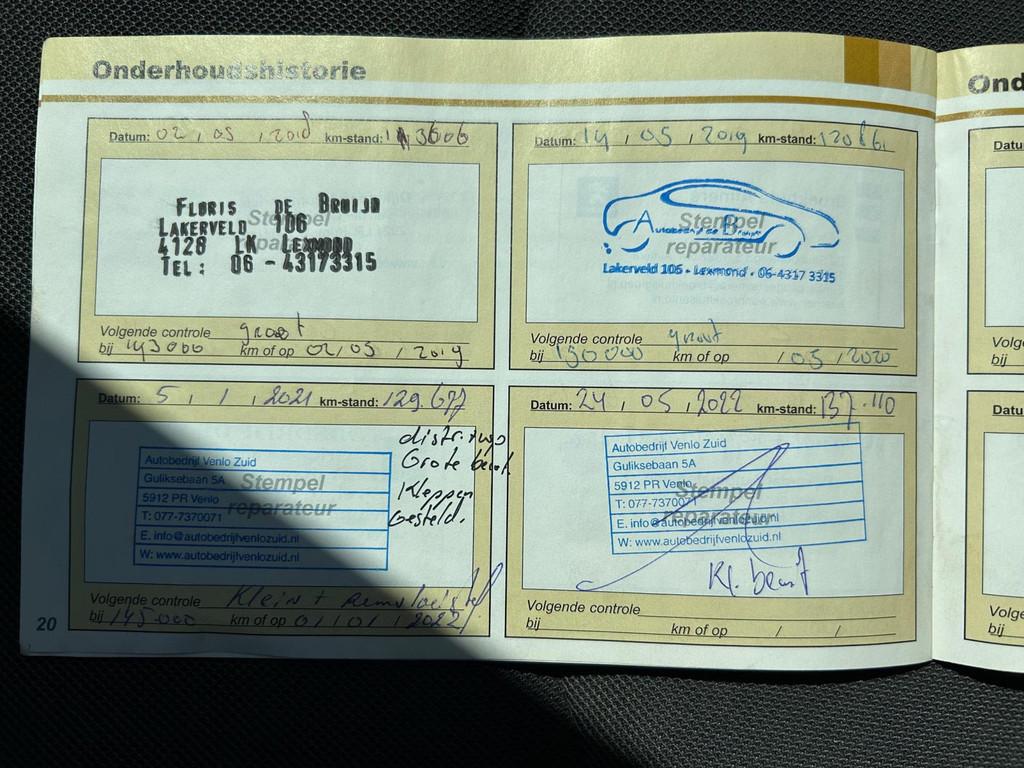 Onderhoudshistorie
Datum: 02 / 05 / 2018 km-stand: 113606
FLORIS DE BRUIJN
LAKERVELD 106
4128 LK LEXMOND
TEL: 06 - 43173315
Stempel
reparateur
Volgende controle groot
bij 143000 km of op 02/05 / 2019
Datum: 14 / 05 / 2019 km-stand:
Stempel
reparateur
Lakerveld 106 - Lexmond - 06-4317 3315
Volgende controle groot
bij 150000 km of op / 05 / 2020
Datum: 5 / 1 / 2021 km-stand: 129.677
distr.
Grote beurt
Kleppen
Gesteld.
Autobedrijf Venlo Zuid
Guliksebaan 5A
5912 PR Venlo
T: 077-7370071
E. info@autobedrijfvenlozuid.nl
W: www.autobedrijfvenlozuid.nl
Stempel
reparateur
Volgende controle Klein +
bij 145.000 km of op 01/01/2022
Datum: 24 / 05 / 2022 km-stand: 137.110
Autobedrijf Venlo Zuid
Guliksebaan 5A
5912 PR Venlo
T: 077-7370071
E. info@autobedrijfvenlozuid.nl
W: www.autobedrijfvenlozuid.nl
Stempel
reparateur
Kl. beurt
Volgende controle
bij km of op / /
20
Ond
Datu
Volge
bij
Datu
Volge
bij